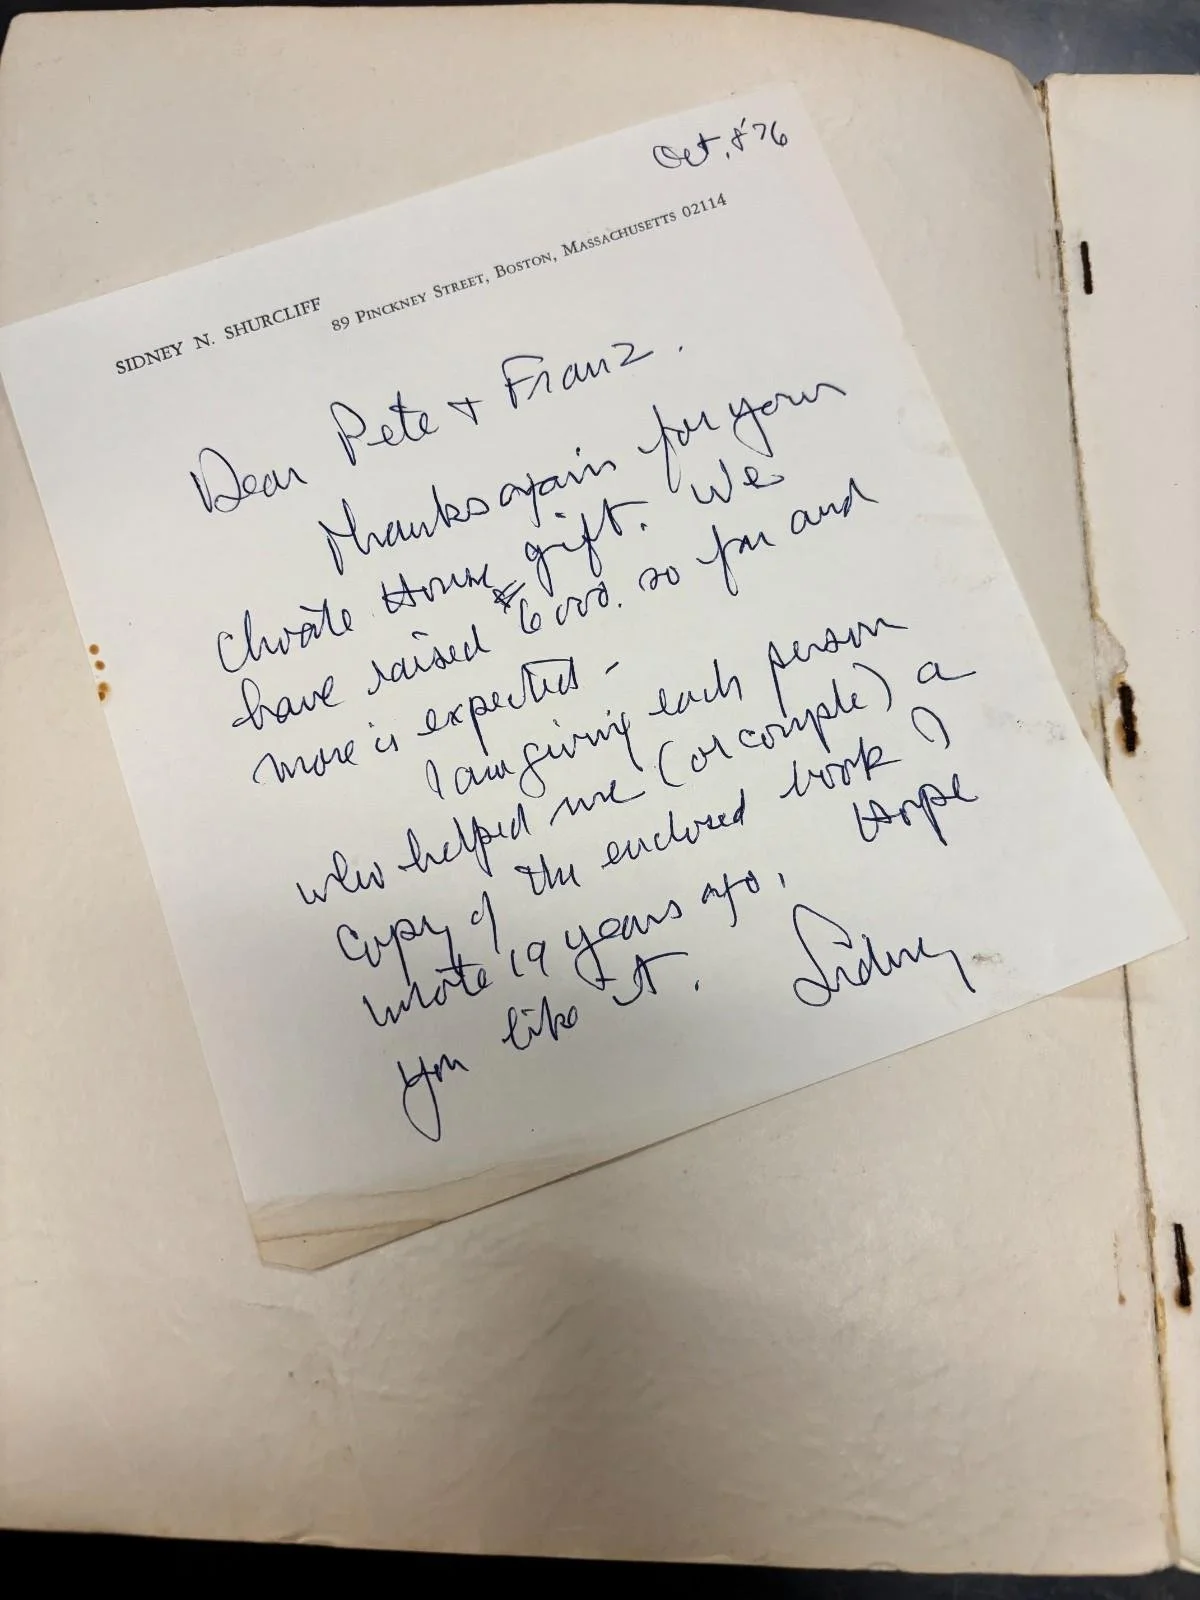 Oct. 8 '76
SIDNEY N. SHURCLIFF 89 PINCKNEY STREET, BOSTON, MASSACHUSETTS 02114
Dear Pete + Franz.
Thanks again for your
Choate House gift. We
have raised $6000. so far and
more is expected -
I am giving each person
who helped me (or couple) a
copy of the enclosed book I
wrote 19 years ago. Hope
you like it. Sidney